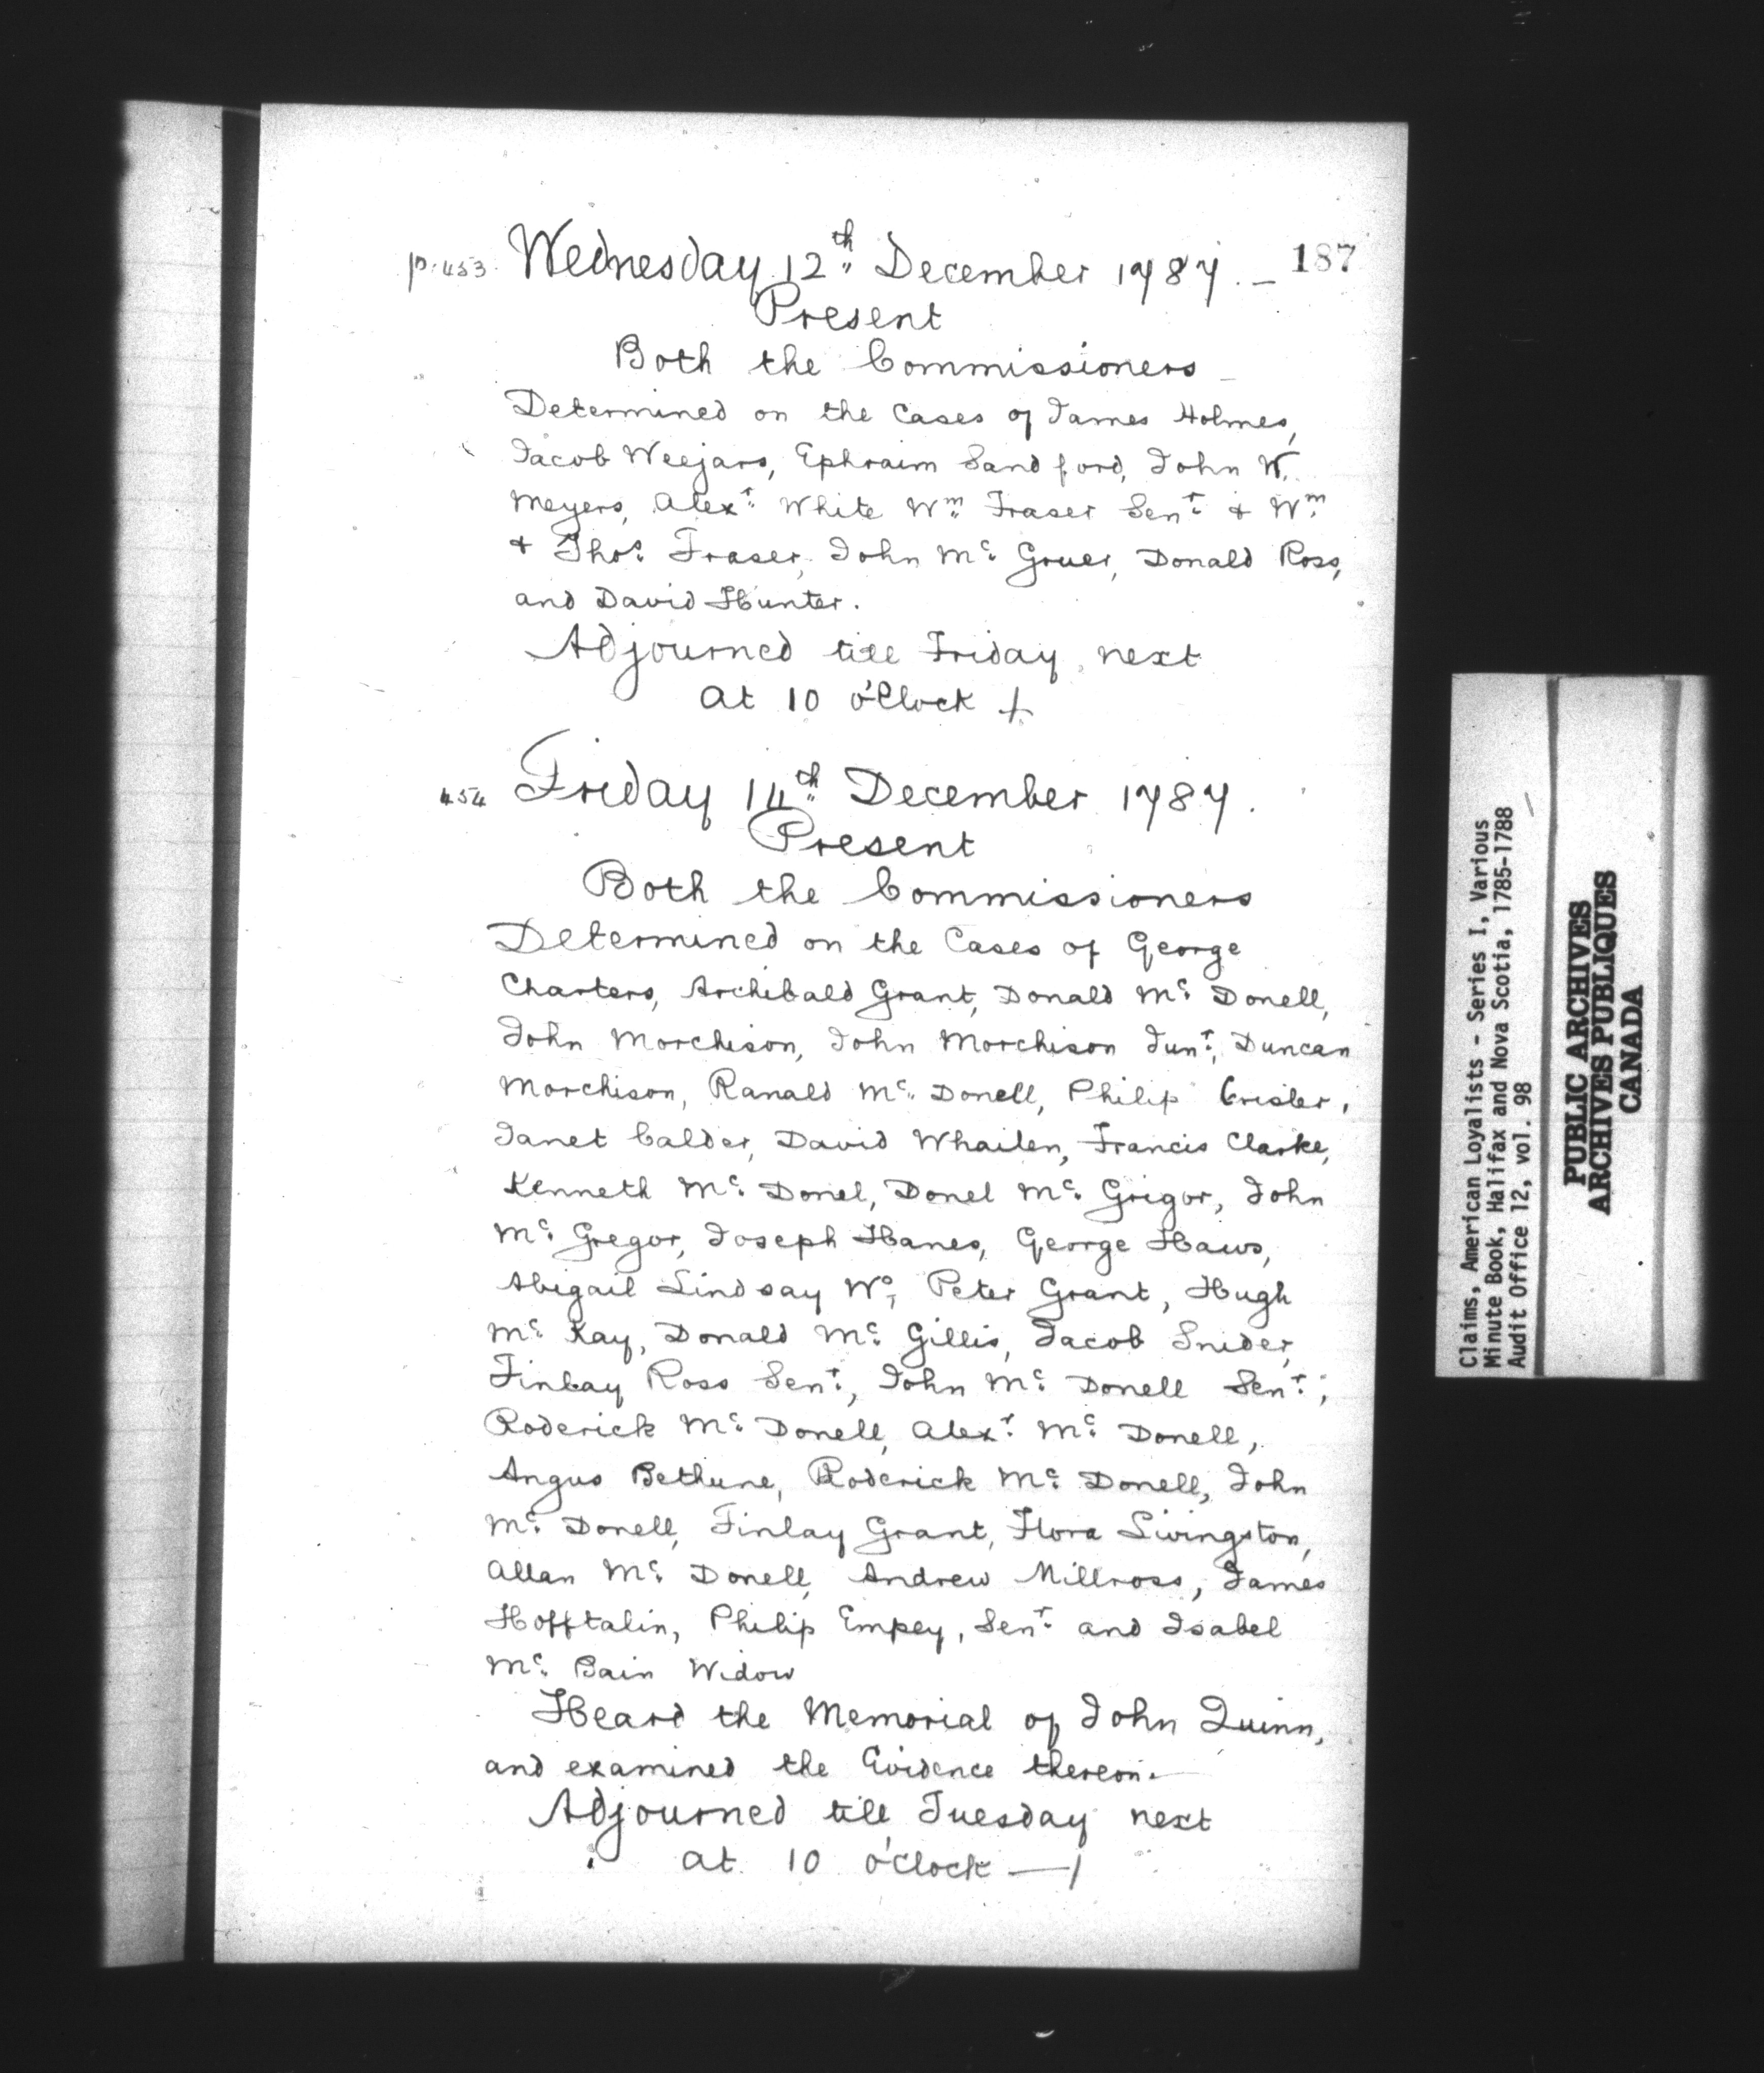 p. 453. Wednesday 12th December 1787. — 187
Present
Both the Commissioners
Determined on the Cases of James Holmes,
Jacob Weejars, Ephraim Sandford, John W.
Meyers, Alexr. White Wm. Fraser Senr. & Wm.
& Thos. Fraser, John Mc. Gruer, Donald Ross,
and David Hunter.
Adjourned till Friday next
at 10 o'Clock
454 Friday 14th December 1787.
Present
Both the Commissioners
Determined on the Cases of George
Charters, Archibald Grant, Donald Mc. Donell,
John Morchison, John Morchison Junr., Duncan
Morchison, Ranald Mc. Donell, Philip Crisler,
Janet Calder, David Whailen, Francis Clarke,
Kenneth Mc. Donel, Donel Mc. Grigor, John
Mc. Gregor, Joseph Hanes, George Haws,
Abigail Lindsay Wo., Peter Grant, Hugh
Mc. Kay, Donald Mc. Gillis, Jacob Snider,
Finlay Ross Senr., John Mc. Donell Senr.,
Roderick Mc. Donell, Alexr. Mc. Donell,
Angus Bethune, Roderick Mc. Donell, John
Mc. Donell, Finlay Grant, Flora Livingston,
Allan Mc. Donell, Andrew Millross, James
Hofftalin, Philip Empey, Senr. and Isabel
Mc. Bain Widow
Heard the Memorial of John Quinn,
and examined the Evidence thereon.—
Adjourned till Tuesday next
at 10 o'Clock —
Claims, American Loyalists - Series I, Various
Minute Book, Halifax and Nova Scotia, 1785-1788
Audit Office 12, vol. 98
PUBLIC ARCHIVES
ARCHIVES PUBLIQUES
CANADA